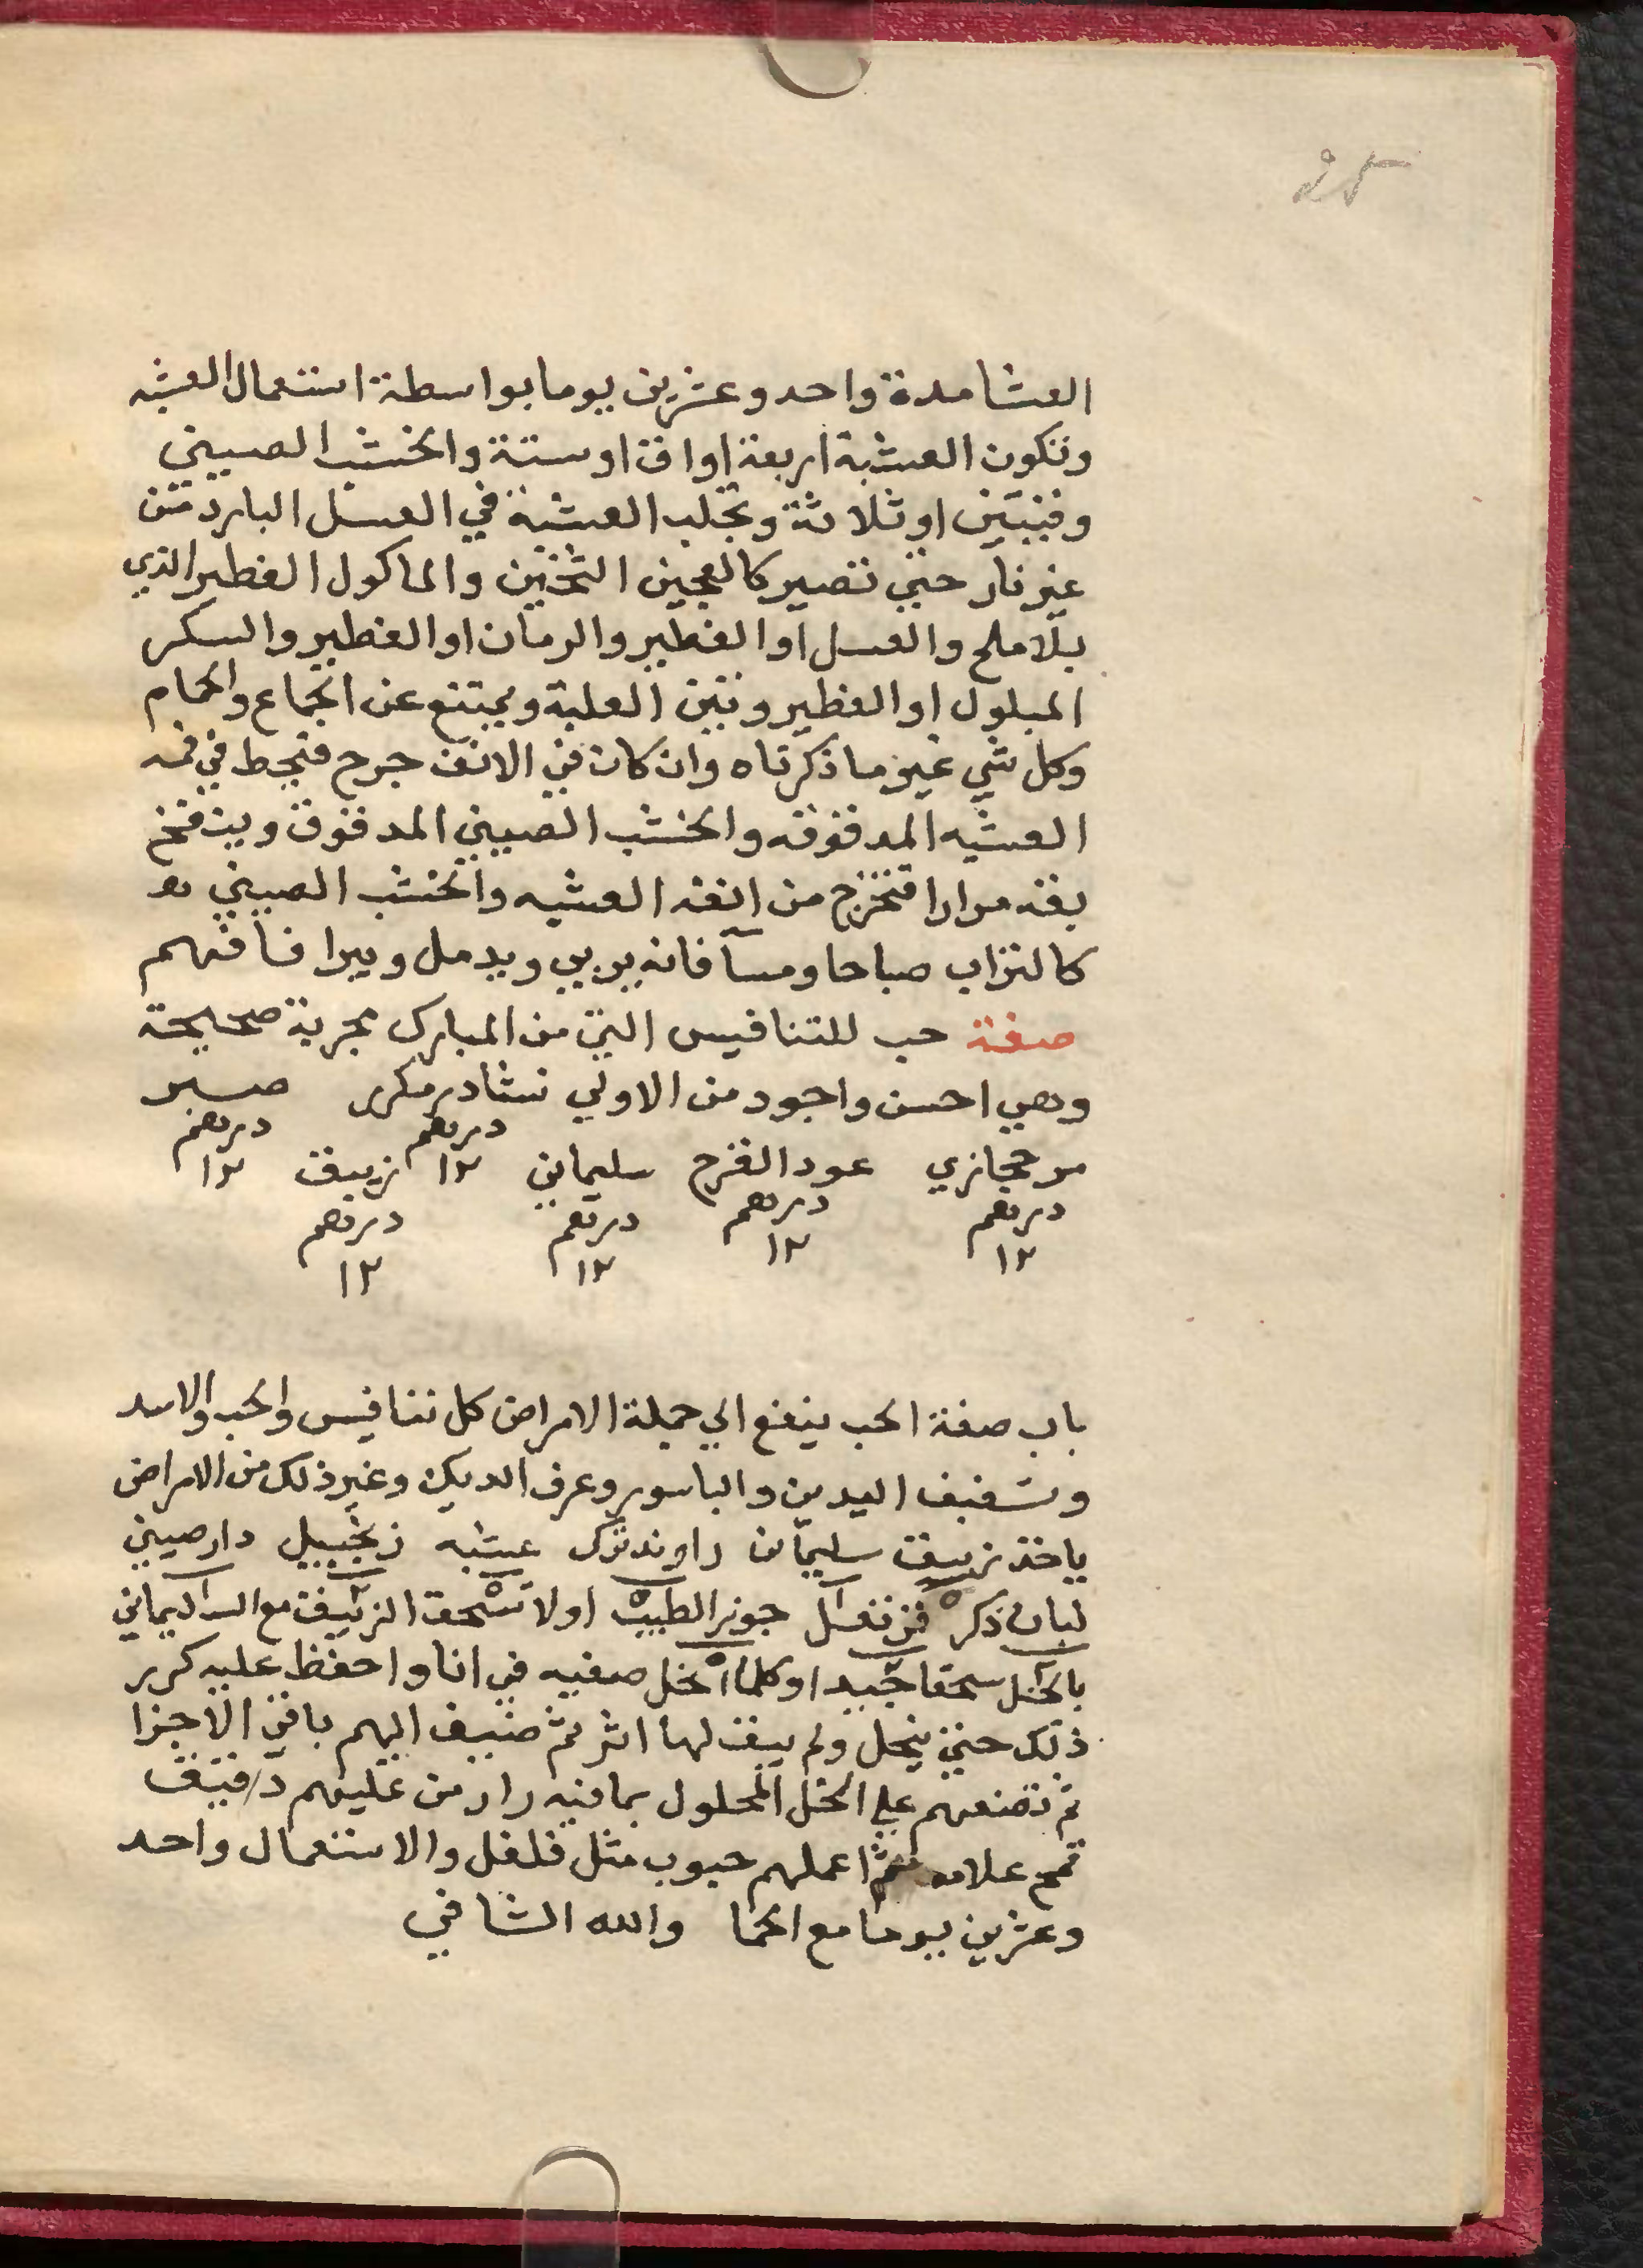 25
العشا مدة واحد وعشرين يوما بواسطة استعمال العشبه
وتكون العشبة اربعة اواق او ستة والخشب الصيني
وقيتين او ثلاثة وتجلب العشبة في العسل البارد من
غير نار حتي تصير كالعجين الثخين والماكول الفطير الذي
بلا ملح والعسل او الفطير والرمان او الفطير والسكر
المبلول او الفطير وتين العلبة ويمتنع عن الجماع والحمام
وكل شي غير ما ذكرناه وان كان في الانف جرح فيحط في فمه
العشبه المدقوقه والخشب الصيني المدقوق وينفخ
بفه مرارا فتخرج من انفه العشبه والخشب الصيني
كالتراب صباحا ومسآ فانه يربي ويدمل ويبرا فافهم
صفة حب للتنافيس التي من المبارك مجربة صحيحة
وهي احسن واجود من الاولي نشادر مكرر صبر
درهم ١٢ درهم ١٢
مر حجازي عود القرح سليماني زيبق
درهم ١٢ درهم ١٢ درهم ١٢ درهم ١٢
باب صفة الحب ينفع الي جملة الامراض كل تنافيس والحب والاسد
وتشقيف اليدين والباسور وعرف الديك وغير ذلك من الامراض
ياخذ زيبق سليماني راوند تركي عشبه زنجبيل دارصيني
لبان ذكر قرنفل جوز الطيب اولا تسحق الزيبق مع السليماني
بالخل سحقا جيدا وكلما انحل صفيه في انا واحفظ عليه كرر
ذلك حتي ينحل ولم يبق لها اثر ثم ضيف اليهم باقي الاجزا
ثم تضعهم علي الخل المحلول بما فيه من عليهم دقيق
قمح علامه ثم اعملهم حبوب مثل فلفل والاستعمال واحد
وعشرين يوما مع الحما والله الشافي